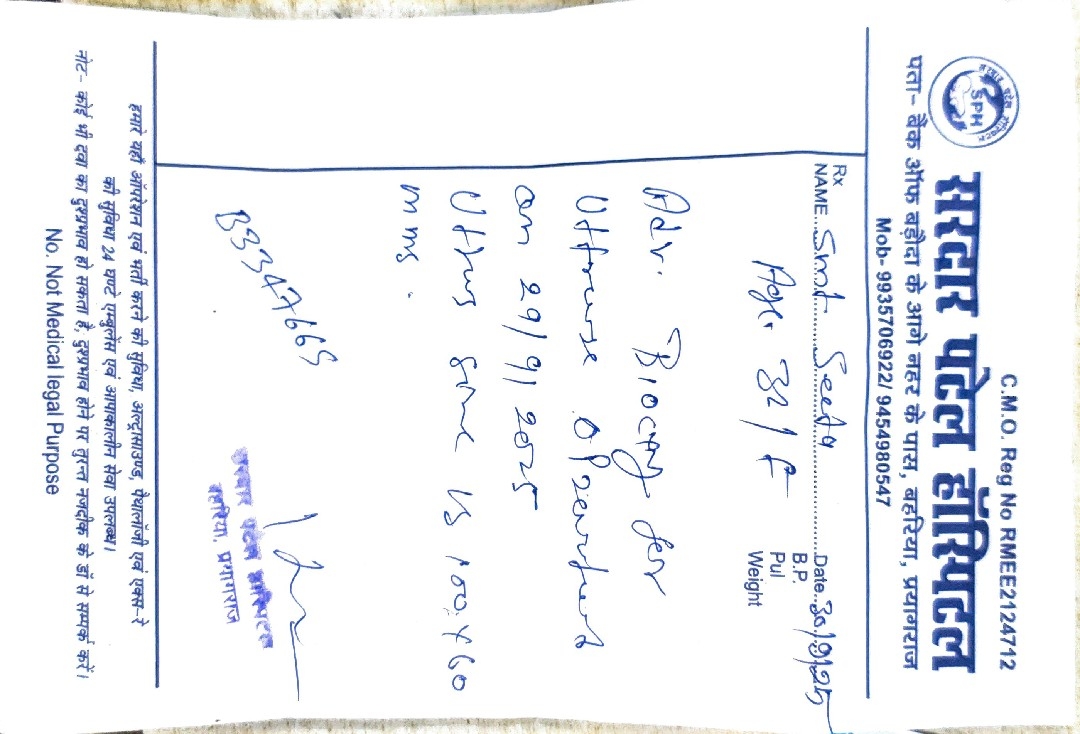 C.M.O. Reg No RMEE2124712
SPH
सरदार पटेल हॉस्पिटल
पता- बैंक ऑफ बड़ौदा के आगे नहर के पास, बहरिया, प्रयागराज
Mob- 9935706922/ 9454980547
Rx
NAME...Smt. Seeta Date..30/9/25
B.P.
Pul
Weight
Age. 32/F
Adv. Biocay for
Utrurse Opseurfued
on 29/9/2025
Utrus size is 100x60
mms.
B33476669
सरदार पटेल हास्पिटल
बहरिया, प्रयागराज
हमारे यहाँ ऑपरेशन एवं भर्ती करने की सुविधा, अल्ट्रासाउण्ड, पैथालॉजी एवं एक्स-रे
की सुविधा 24 घण्टे एम्बुलेंस एवं आपाकालीन सेवा उपलब्ध।
नोट- कोई भी दवा का दुश्प्रभाव हो सकता है, दुश्प्रभाव होने पर तुरन्त नजदीक के डॉ से सम्पर्क करें।
No. Not Medical legal Purpose